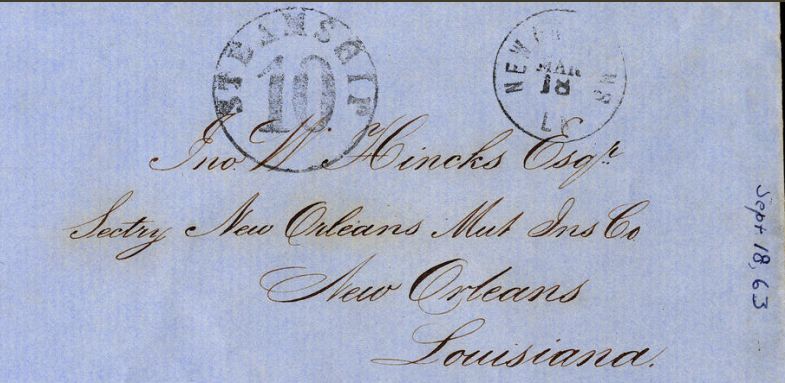 STEAMSHIP
10
NEW ORLEANS
MAR
18
LA
Jno. W. Hincks Esqr.
Sectry New Orleans Mut Ins Co
New Orleans
Louisiana.
Sept 18, 63